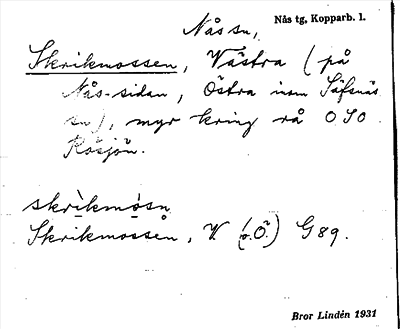 Nås sn,
Nås tg, Kopparb. l.
Skrikmossen, Västra (på
Nås-sidan, Östra inom Säfsnäs
sn), myr kring rå OSO
Rösjön.
skrìkmòsn
Skrikmossen, V. (o. Ö.) G89.
Bror Lindén 1931